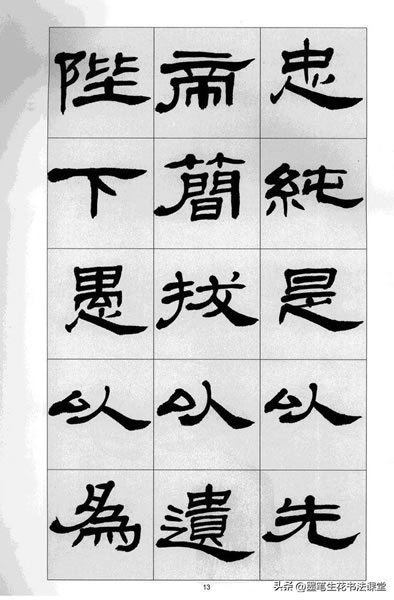 忠純是以先
帝簡拔以遺
陛下愚以為
13
头条@墨笔生花书法课堂